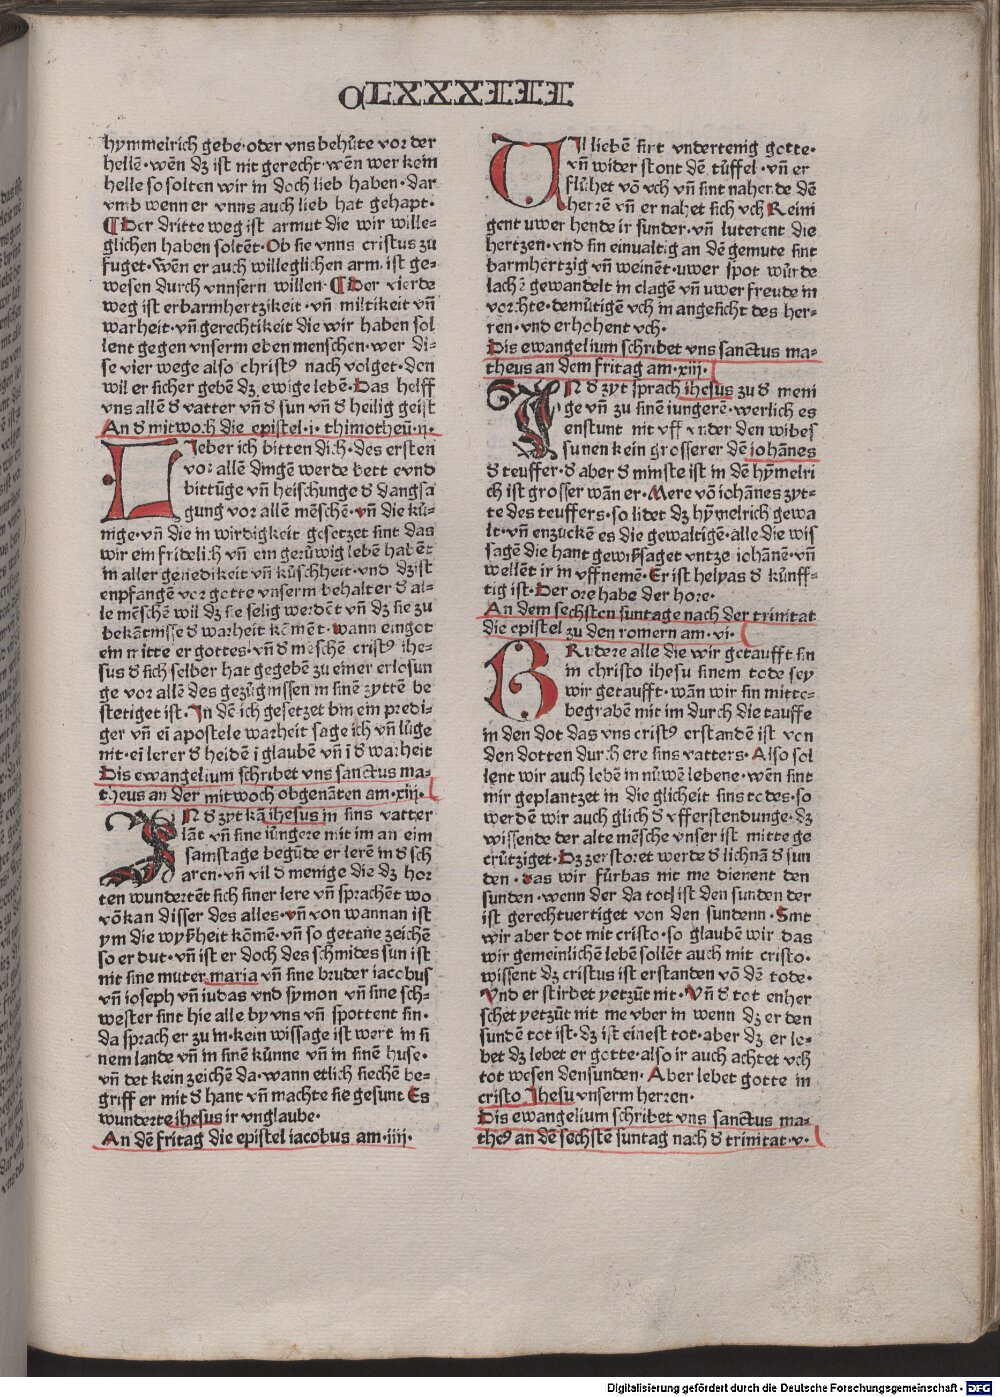 CLXXXIIII
hymmelrich gebe·oder vns behůte vor der
hellē·wēn dz ist nit gerecht·wēn wer kein
helle so solten wir in doch lieb haben·dar
vmb wenn er vnns auch lieb hat gehapt·
¶Der dritte weg ist armut die wir wille-
glichen haben soltēt·Ob sie vnns cristus zu
fuget·Wēn er auch willeglichen arm ist ge-
wesen durch vnnsern willen·¶Der vierde
weg ist erbarmhertzikeit·vn̄ miltikeit vn̄
warheit·vn̄ gerechtikeit die wir haben sol
lent gegen vnserm eben menschen·wer di-
se vier wege also christꝰ nach volget·den
wil er sicher gebē dz ewige lebē·Das helff
vns allē d vatter vn̄ d sun vn̄ d heilig geist
An d mitwoch die epistel·i·thimotheū·ij·
LIeber ich bitten dich·des ersten
vor allē dingē werde bett vnd
bittūge vn̄ heischunge d dangsa
gung vor allē mēschē·vn̄ die kū-
nige·vn̄ die in wirdigkeit gesetzet sint das
wir ein fridelich vn̄ ein gerůwig lebē habēt
in aller genedikeit vn̄ kůschheit·vnd dz ist
enpfangē vor gotte vnserm behalter d al-
le mēschē wil dz sie selig werdēt vn̄ dz sie zu
bekātnisse d warheit kōmēt·wann ein got
ein mitte er gottes·vn̄ d mēschē cristꝰ ihe-
sus d sich selber hat gegebē zu einer erlosun
ge vor allē des gezůgnissen in sinē zyttē be
stetiget ist·In dē ich gesetzet bin ein predi-
ger vn̄ ei apostele warheit sage ich vn̄ lůge
nit·ei lerer d heidē i glaubē vn̄ i d warheit
Dis ewangelium schribet vns sanctus ma-
theus an der mitwoch obgenāten am·xiij·
IN d zyt kā ihesus in sins vatter
lāt vn̄ sine iůngere mit im an eim
samstage begūde er lerē in d sch
aren·vn̄ vil d menige die dz hor
ten wundertēt sich siner lere vn̄ sprachēt wo
vō kan disser des alles·vn̄ von wannan ist
ym die wyßheit kōmē·vn̄ so getane zeichē
so er dut·vn̄ ist er doch des schmides sun ist
nit sine muter maria vn̄ sine bruder iacobus
vn̄ ioseph vn̄ iudas vnd symon vn̄ sine sch-
wester sint hie alle by vns vn̄ spottent sin·
da sprach er zu in·kein wissage ist wert in si
nem lande vn̄ in sinē kůnne vn̄ in sinē huse·
vn̄ det kein zeichē da·wann etlich siechē be-
griff er mit d hant vn̄ machte sie gesunt Es
wunderte ihesus ir vnglaube·
An dē fritag die epistel iacobus am·iiij·
UIl liebē sint vndertenig gotte·
vn̄ wider stont dē tůffel·vn̄ er
flůhet vō vch vn̄ sint nahende dē
herrē vn̄ er nahet sich vch Reini
gent uwer hende ir sunder·vn̄ luterent die
hertzen·vnd sin einualtig an dē gemute sint
barmhertzig vn̄ weinēt·uwer spot wůrde
lachē gewandelt in clagē vn̄ uwer freude in
vorchte·demůtigēt vch in angesicht des her-
ren·vnd erhohent vch·
Dis ewangelium schribet vns sanctus ma-
theus an dem fritag am·xiij·
IN d zyt sprach ihesus zu d meni
ge vn̄ zu sinē iungerē·werlich es
enstunt nit vff vnder den wibes
sunen kein grosserer dē iohānes
d teuffer·d aber d minste ist in dē hȳmelri
ch ist grosser wān er·Mere vō iohānes zyt-
te des teuffers·so lidet dz hȳmelrich gewa
lt·vn̄ enzuckē es die gewaltigē·alle die wis
sagē die hant gewissaget vntze iohānē·vn̄
wellēt ir in vffnemē·Er ist helyas d kůnff-
tig ist·Der ore habe der hore·
An dem sechsten suntage nach der trinitat
die epistel zu den romern am·vi·
BRudere alle die wir getaufft sin
in christo ihesu sinem tode sey
wir getaufft·wān wir sin mitte-
begrabē mit im durch die tauffe
in den dot das vns cristꝰ erstandē ist von
den dotten durch ere sins vatters·Also sol
lent wir auch lebē in nůwē lebene·wēn sint
mir geplantzet in die glicheit sins todes·so
werdē wir auch glich d vfferstendunge·dz
wissende der alte mēsche vnser ist mitte ge
crůtziget·Dz zerstoret werde d lichnā d sun
den·das wir fůrbas nit me dienent den
sunden·wenn der da tot ist den sunden der
ist gerechtuertiget von den sundenn·Sint
wir aber dot mit cristo·so glaubē wir das
wir gemeinlichē lebē sollēt auch mit cristo·
wissent dz cristus ist erstanden vō dē tode·
Vnd er stirbet yetzūt nit·Vn̄ d tot enher
schet yetzůt nit me vber in wenn dz er den
sundē tot ist·dz ist einest tot·aber dz er le-
bet dz lebet er gotte·also ir auch achtet vch
tot wesen den sunden·Aber lebet gotte in
cristo Ihesu vnserm herren·
Dis ewangelium schribet vns sanctus ma-
theꝰ an dē sechstē suntag nach d trinitat·v·
Digitalisierung gefördert durch die Deutsche Forschungsgemeinschaft - DFG